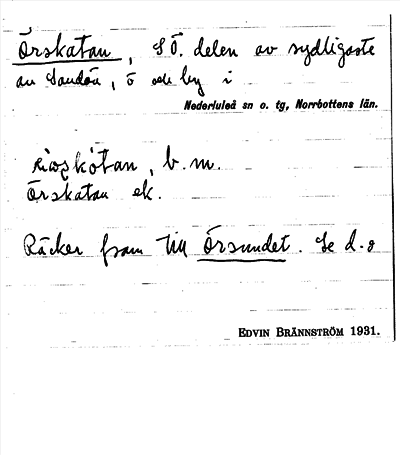 Örskatan, SÖ. delen av sydligaste
av Sandöa, ö och by i
Nederluleå sn o. tg, Norrbottens län.
b. m.
Örskatan ek.
Räcker fram till Örsundet. Se d. o
EDVIN BRÄNNSTRÖM 1931.